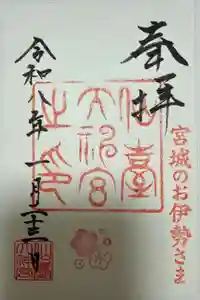 奉拝
宮城のお伊勢さま
仙臺大神宮之印
令和八年一月二十三日